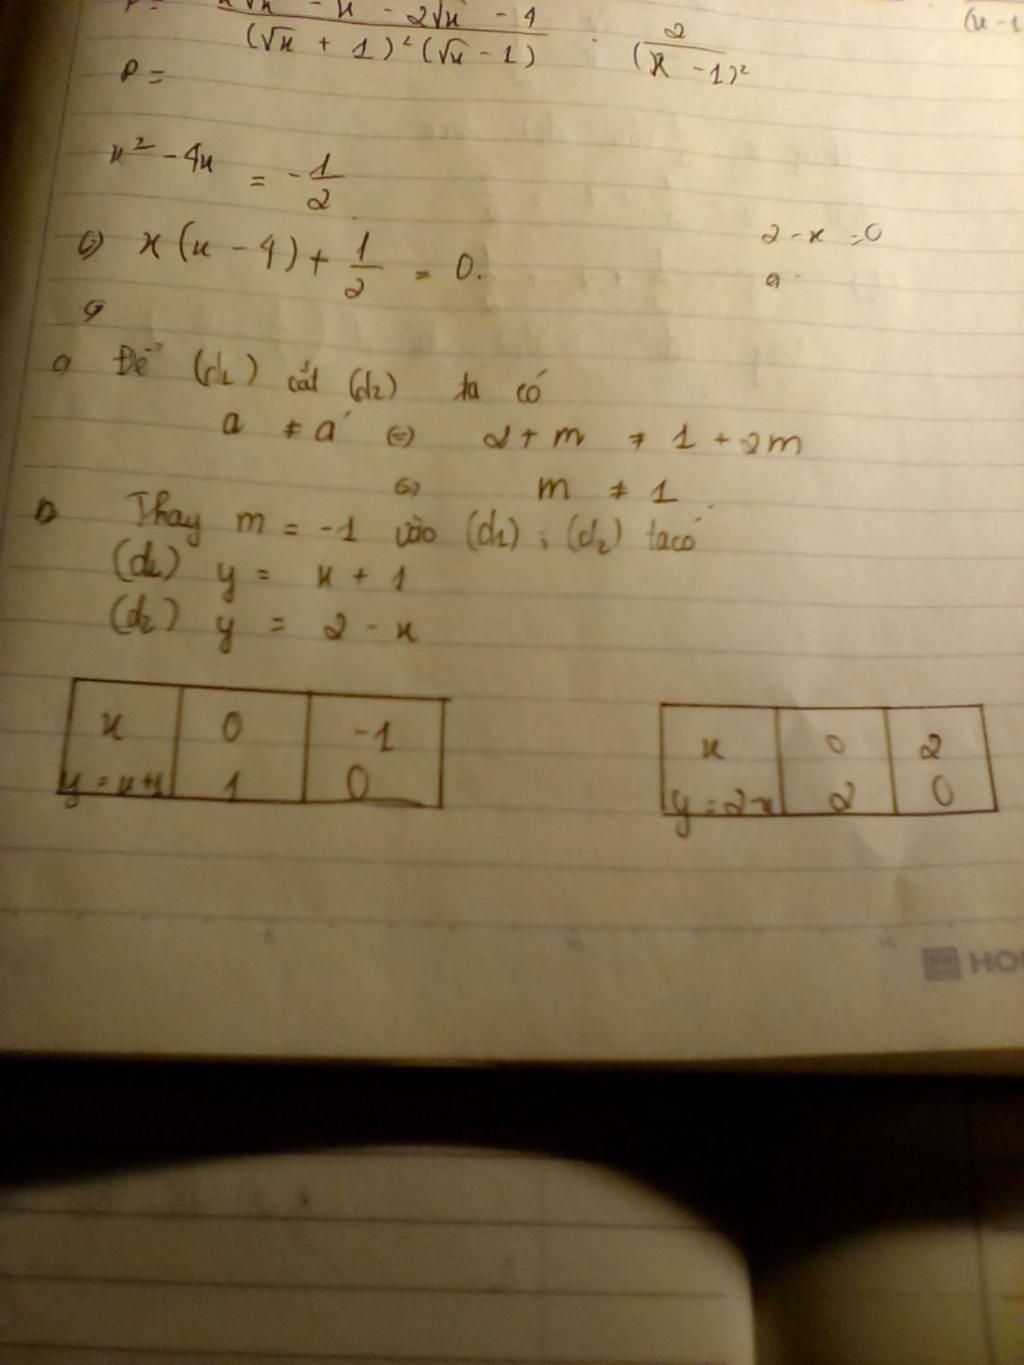 - 2√x - 4
(√x + 1)² (√x - 1) : 2
(x - 1)²
P =
x² - 4x = - 1/2
⇔ x(x - 4) + 1/2 = 0.
2 - x = 0
a Để (d1) cắt (d2) ta có
a ≠ a' ⇔ 2 + m ≠ 1 + 2m
⇔ m ≠ 1.
b Thay m = -1 vào (d1) ; (d2) ta có
(d1) y = x + 1
(d2) y = 2 - x
x 0 -1
y = x+1 1 0
x 0 2
y = 2-x 2 0